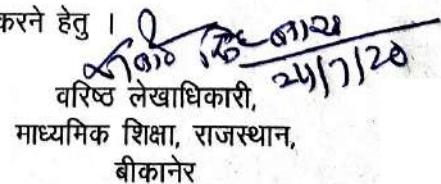 करने हेतु ।
24/7/20
वरिष्ठ लेखाधिकारी,
माध्यमिक शिक्षा, राजस्थान,
बीकानेर